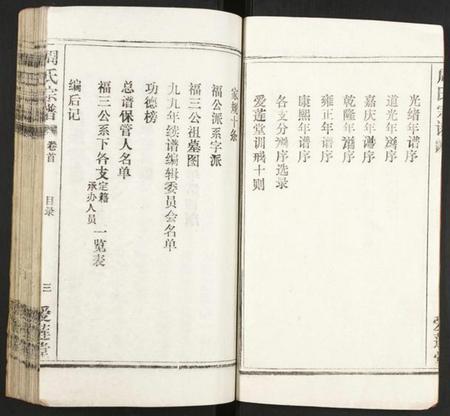 光绪年谱序
道光年谱序
嘉庆年谱序
乾隆年谱序
雍正年谱序
康熙年谱序
各支分谱序选录
爱莲堂训戒十则
家规十条
福公派系字派
福三公祖墓图
九九年续谱编辑委员会名单
功德榜
总谱保管人名单
福三公系下各支定籍承办人员一览表
编后记
周氏宗谱
卷首
目录
三
爱莲堂